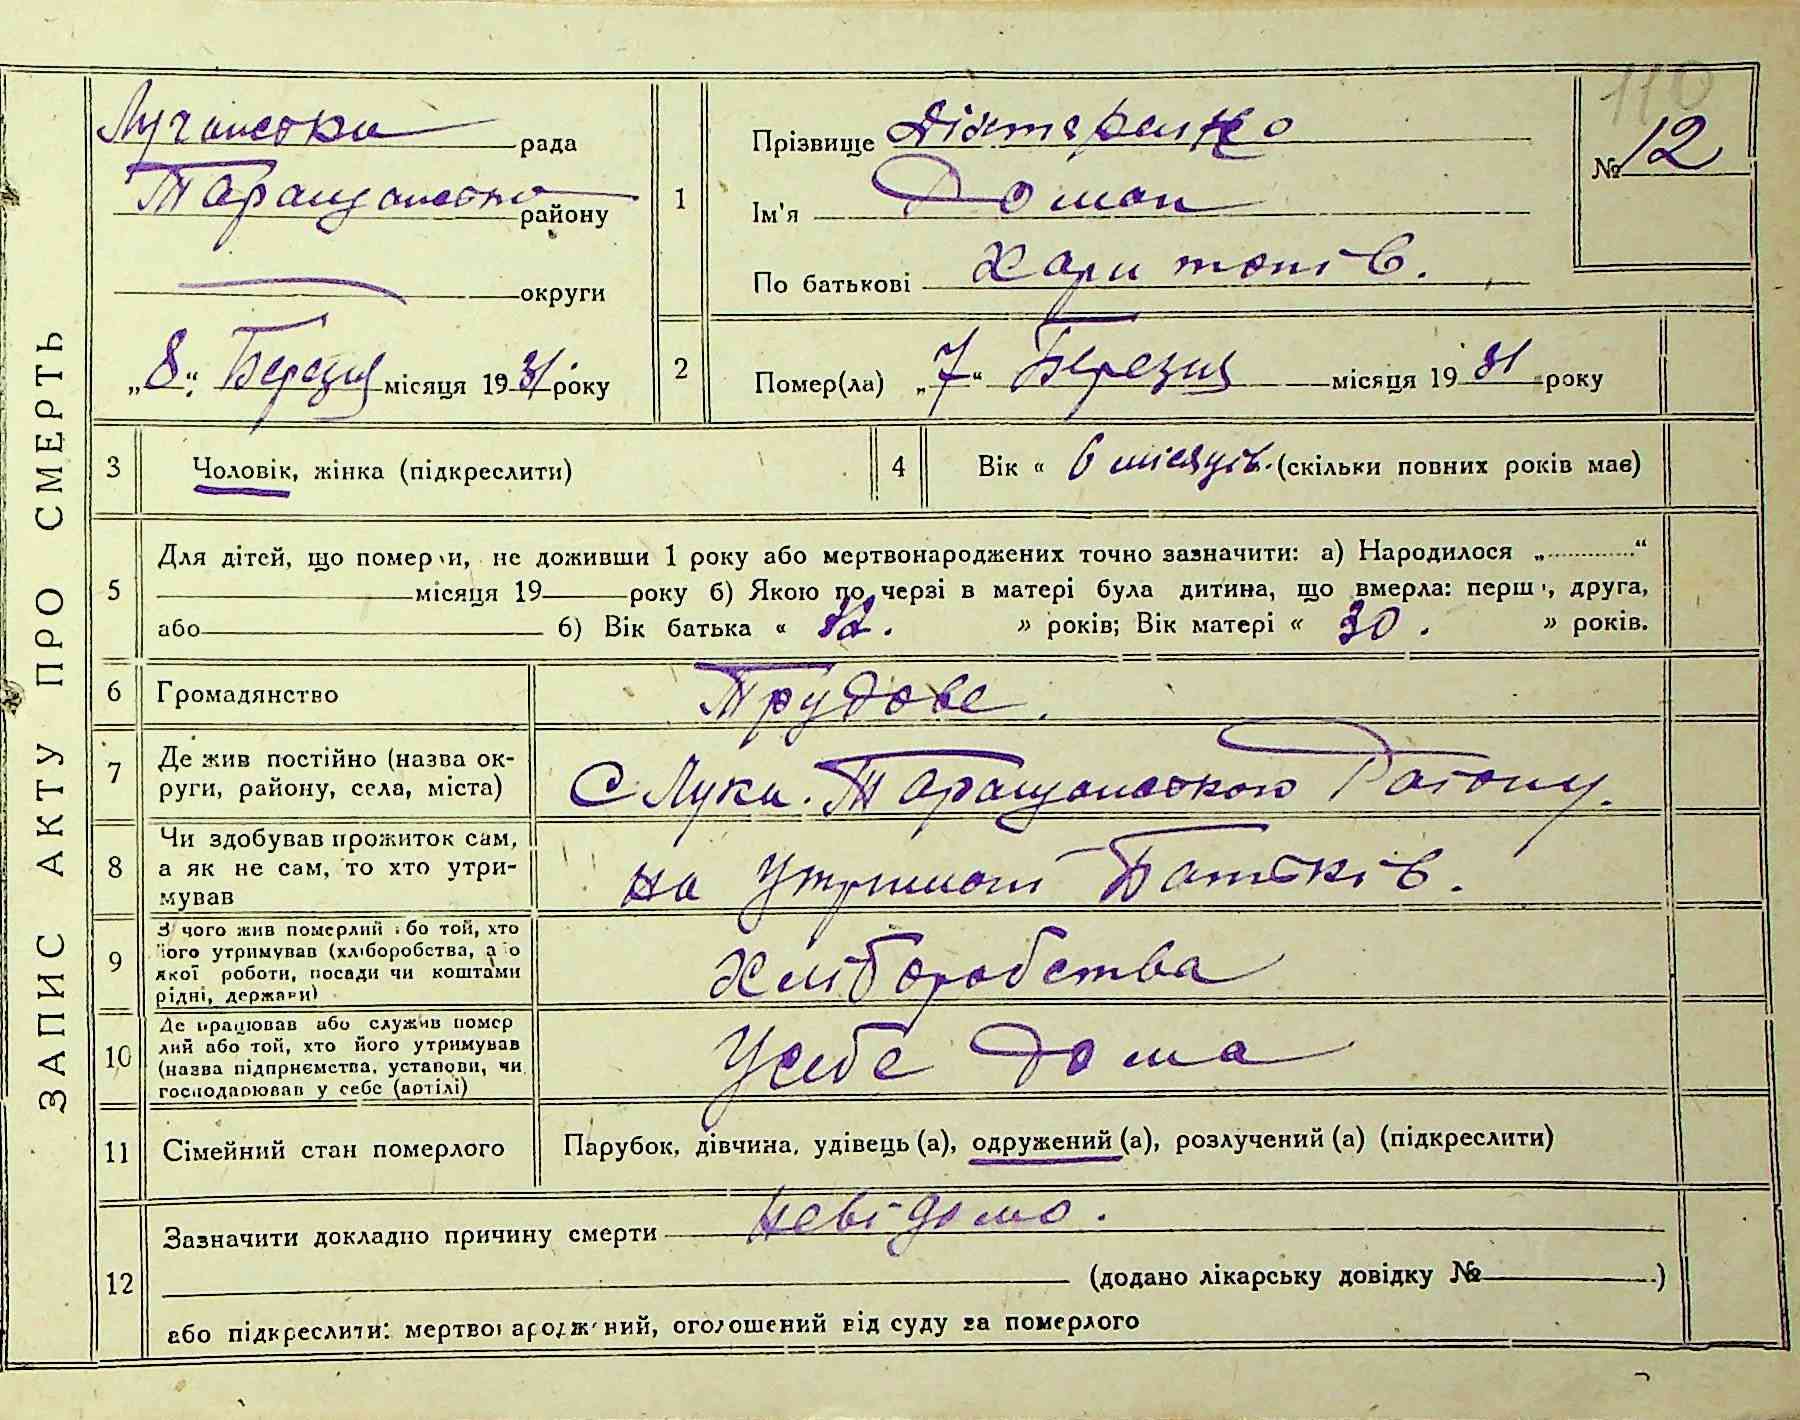 ЗАПИС АКТУ ПРО СМЕРТЬ
110
№ 12
Лучанська рада
Таращанська району
округи
„8“ Березня місяця 1931 року
1
Прізвище Діхтеренко
Ім'я Роман
По батькові Харитонів.
2
Помер(ла) „7“ Березня місяця 1931 року
3
Чоловік, жінка (підкреслити)
4
Вік « 6 місяців. (скільки повних років має)
5
Для дітей, що померли, не доживши 1 року або мертвонароджених точно зазначити: а) Народилося „ “
місяця 19 року б) Якою по черзі в матері була дитина, що вмерла: перша, друга,
або б) Вік батька « 32. » років; Вік матері « 30. » років.
6
Громадянство
Трудове.
7
Де жив постійно (назва ок-
руги, району, села, міста)
С Лука. Таращанського Району.
8
Чи здобував прожиток сам,
а як не сам, то хто утри-
мував
на Утримані Батьків.
9
З чого жив померлий або той, хто
його утримував (хліборобства, або
якої роботи, посади чи коштами
рідні, держави)
Хліборобства
10
Де працював або служив помер
лий або той, хто його утримував
(назва підприємства, установи, чи
господарював у себе (артілі)
Усебе дома
11
Сімейний стан померлого
Парубок, дівчина, удівець (а), одружений (а), розлучений (а) (підкреслити)
12
Зазначити докладно причину смерти невідомо.
(додано лікарську довідку № )
або підкреслити: мертвонароджений, оголошений від суду за померлого